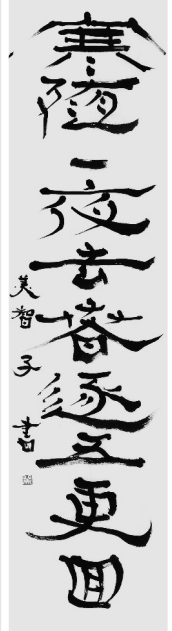 寒隨一夜去春逐五更回
美智子書